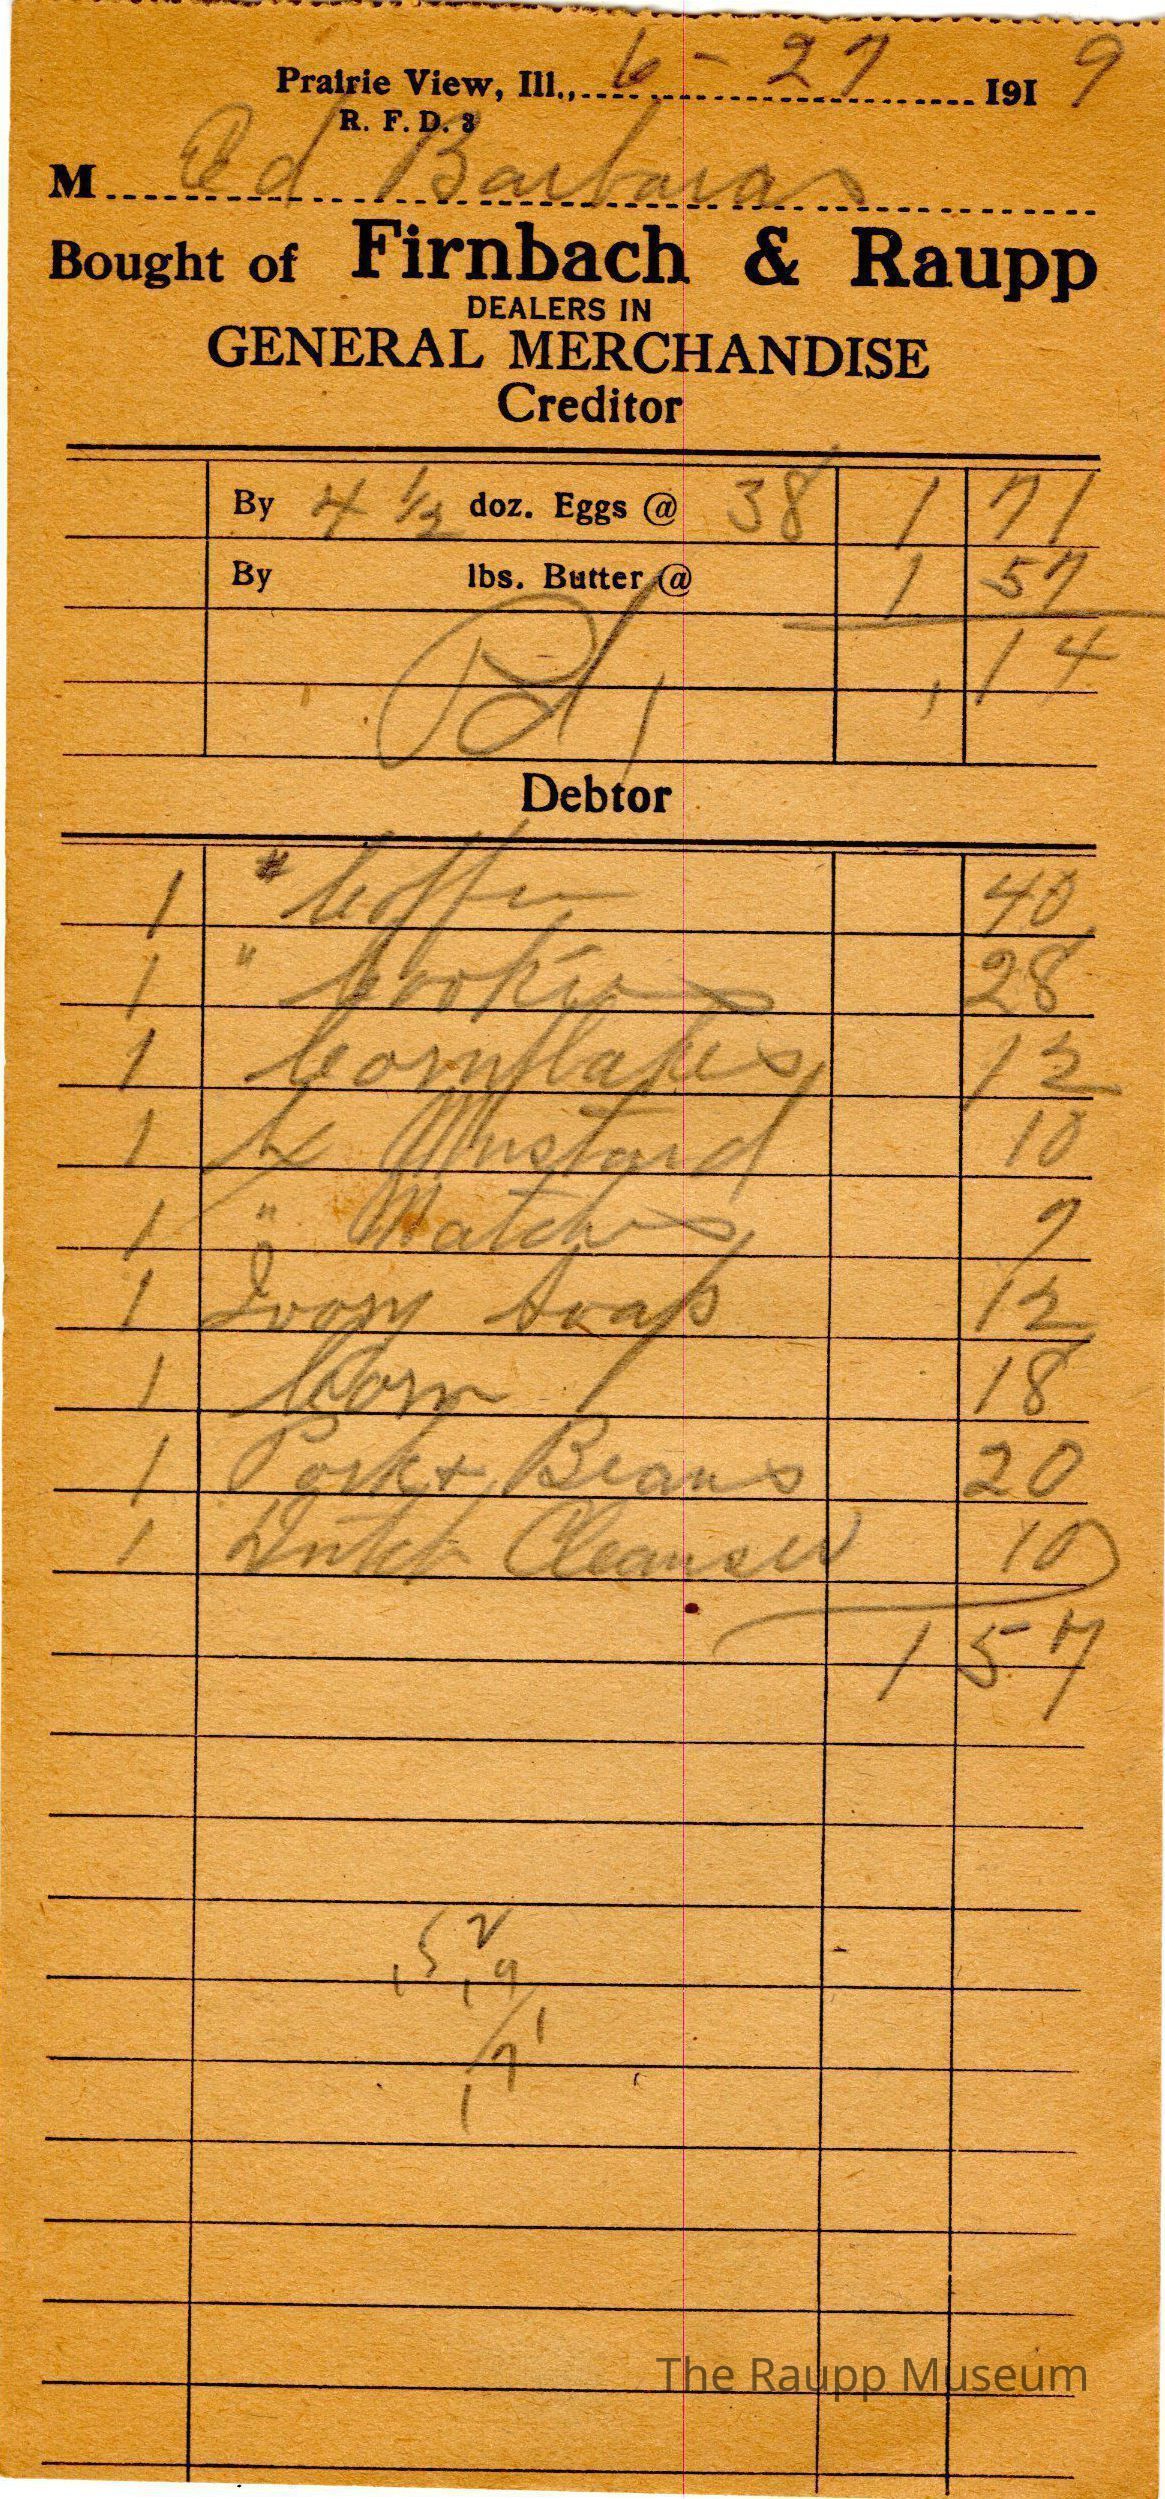 Prairie View, Ill., 6 - 27 1919
R. F. D. 3
M Ed Barbaras
Bought of Firnbach & Raupp
DEALERS IN
GENERAL MERCHANDISE
Creditor
By 4 1/2 doz. Eggs @ 38 1 71
By lbs. Butter @ 1 57
Pd 14
Debtor
1 # Coffee 40
1 " Cookies 28
1 Cornflakes 12
1 Mustard 10
1 " Matches 7
1 Ivory Soap 12
1 Corn 18
1 Pork + Beans 20
1 Dutch Cleanser 10
1 57
The Raupp Museum